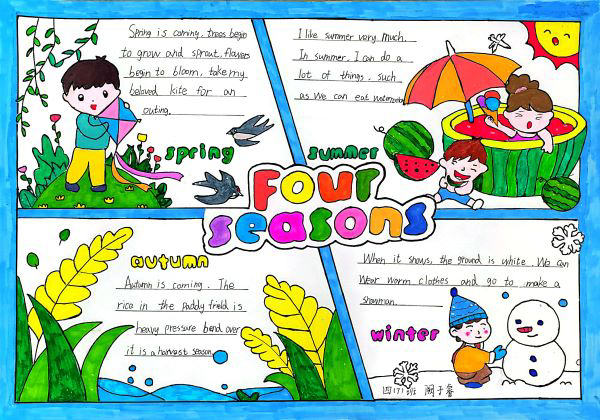 Spring is coming, trees begin
to grow and sprout, flowers
begin to bloom, take my
beloved kite for an
outing.
spring
I like summer very much.
In summer, I can do a
lot of things, such
as we can eat watermelon
summer
Four
seasons
autumn
Autumn is coming. The
rice in the paddy field is
heavy pressure bend over
it is a harvest season.
When it snows, the ground is white. We can
wear warm clothes and go to make a
snowman.
winter
四(7)班